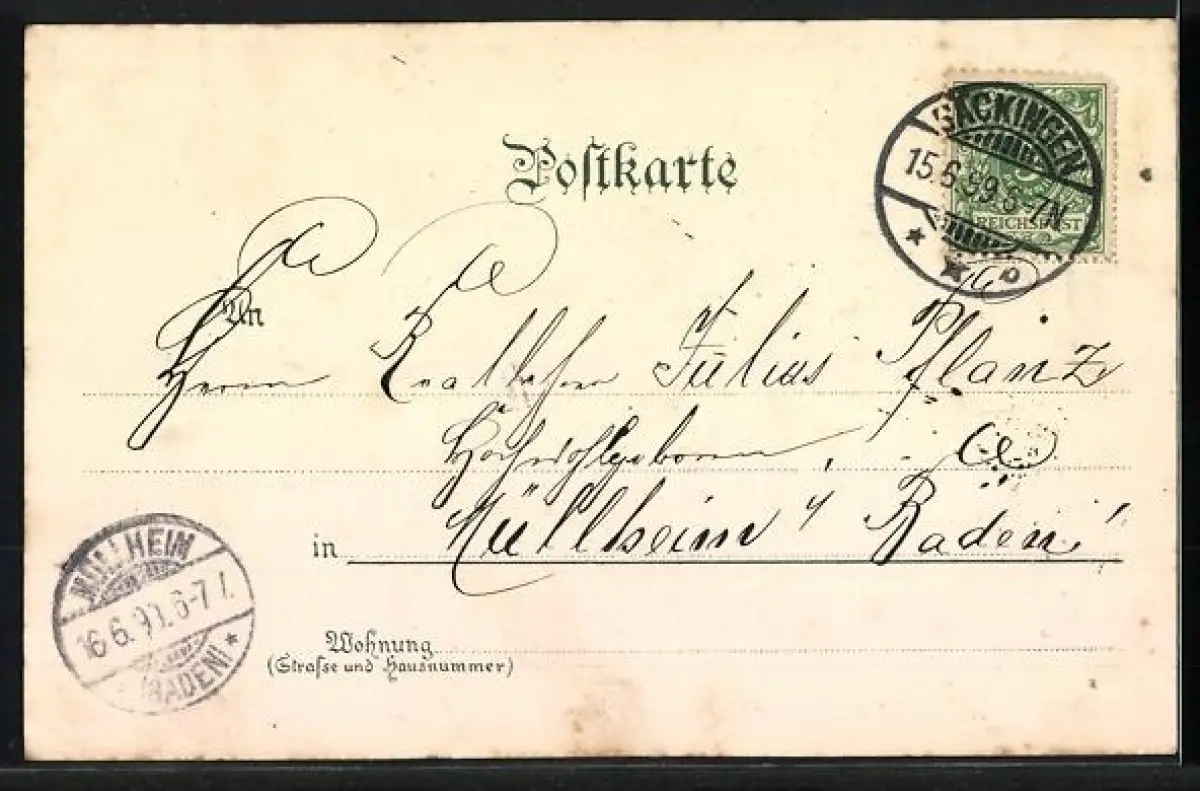 Postkarte
SÄCKINGEN
15.6.99.6-7N
REICHSPOST
An
Herrn Julius Pflanz
Hochwohlgeboren,
in Müllheim, Baden!
MÜLLHEIM
16.6.99.6-7
(BADEN)
Wohnung
(Straſse und Hausnummer)